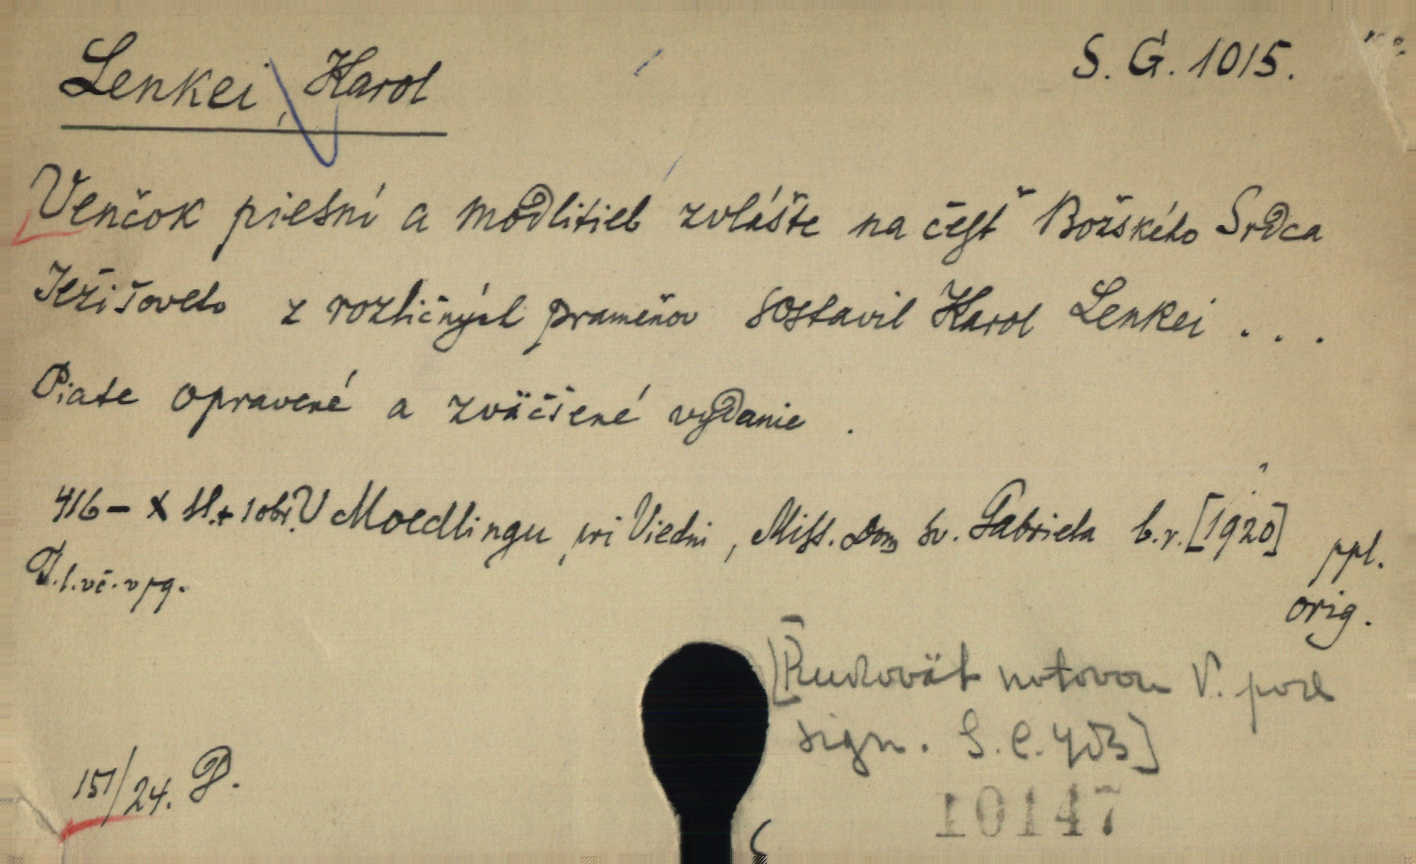 Lenkei, Karol
S. G. 1015.
Venčok piesní a modlitieb zvlášte na česť Božského Srdca
Ježišoveho z rozličných prameňov sostavil Karol Lenkei . . .
Piate opravené a zväčšené vydanie .
416 – X st. + 1 obr. V Moedlingu pri Viedni, Miss. Dom sv. Gabriela b. r. [1920]
ppl.
orig.
151/24. P.
notovou V. pod
sign.
10147